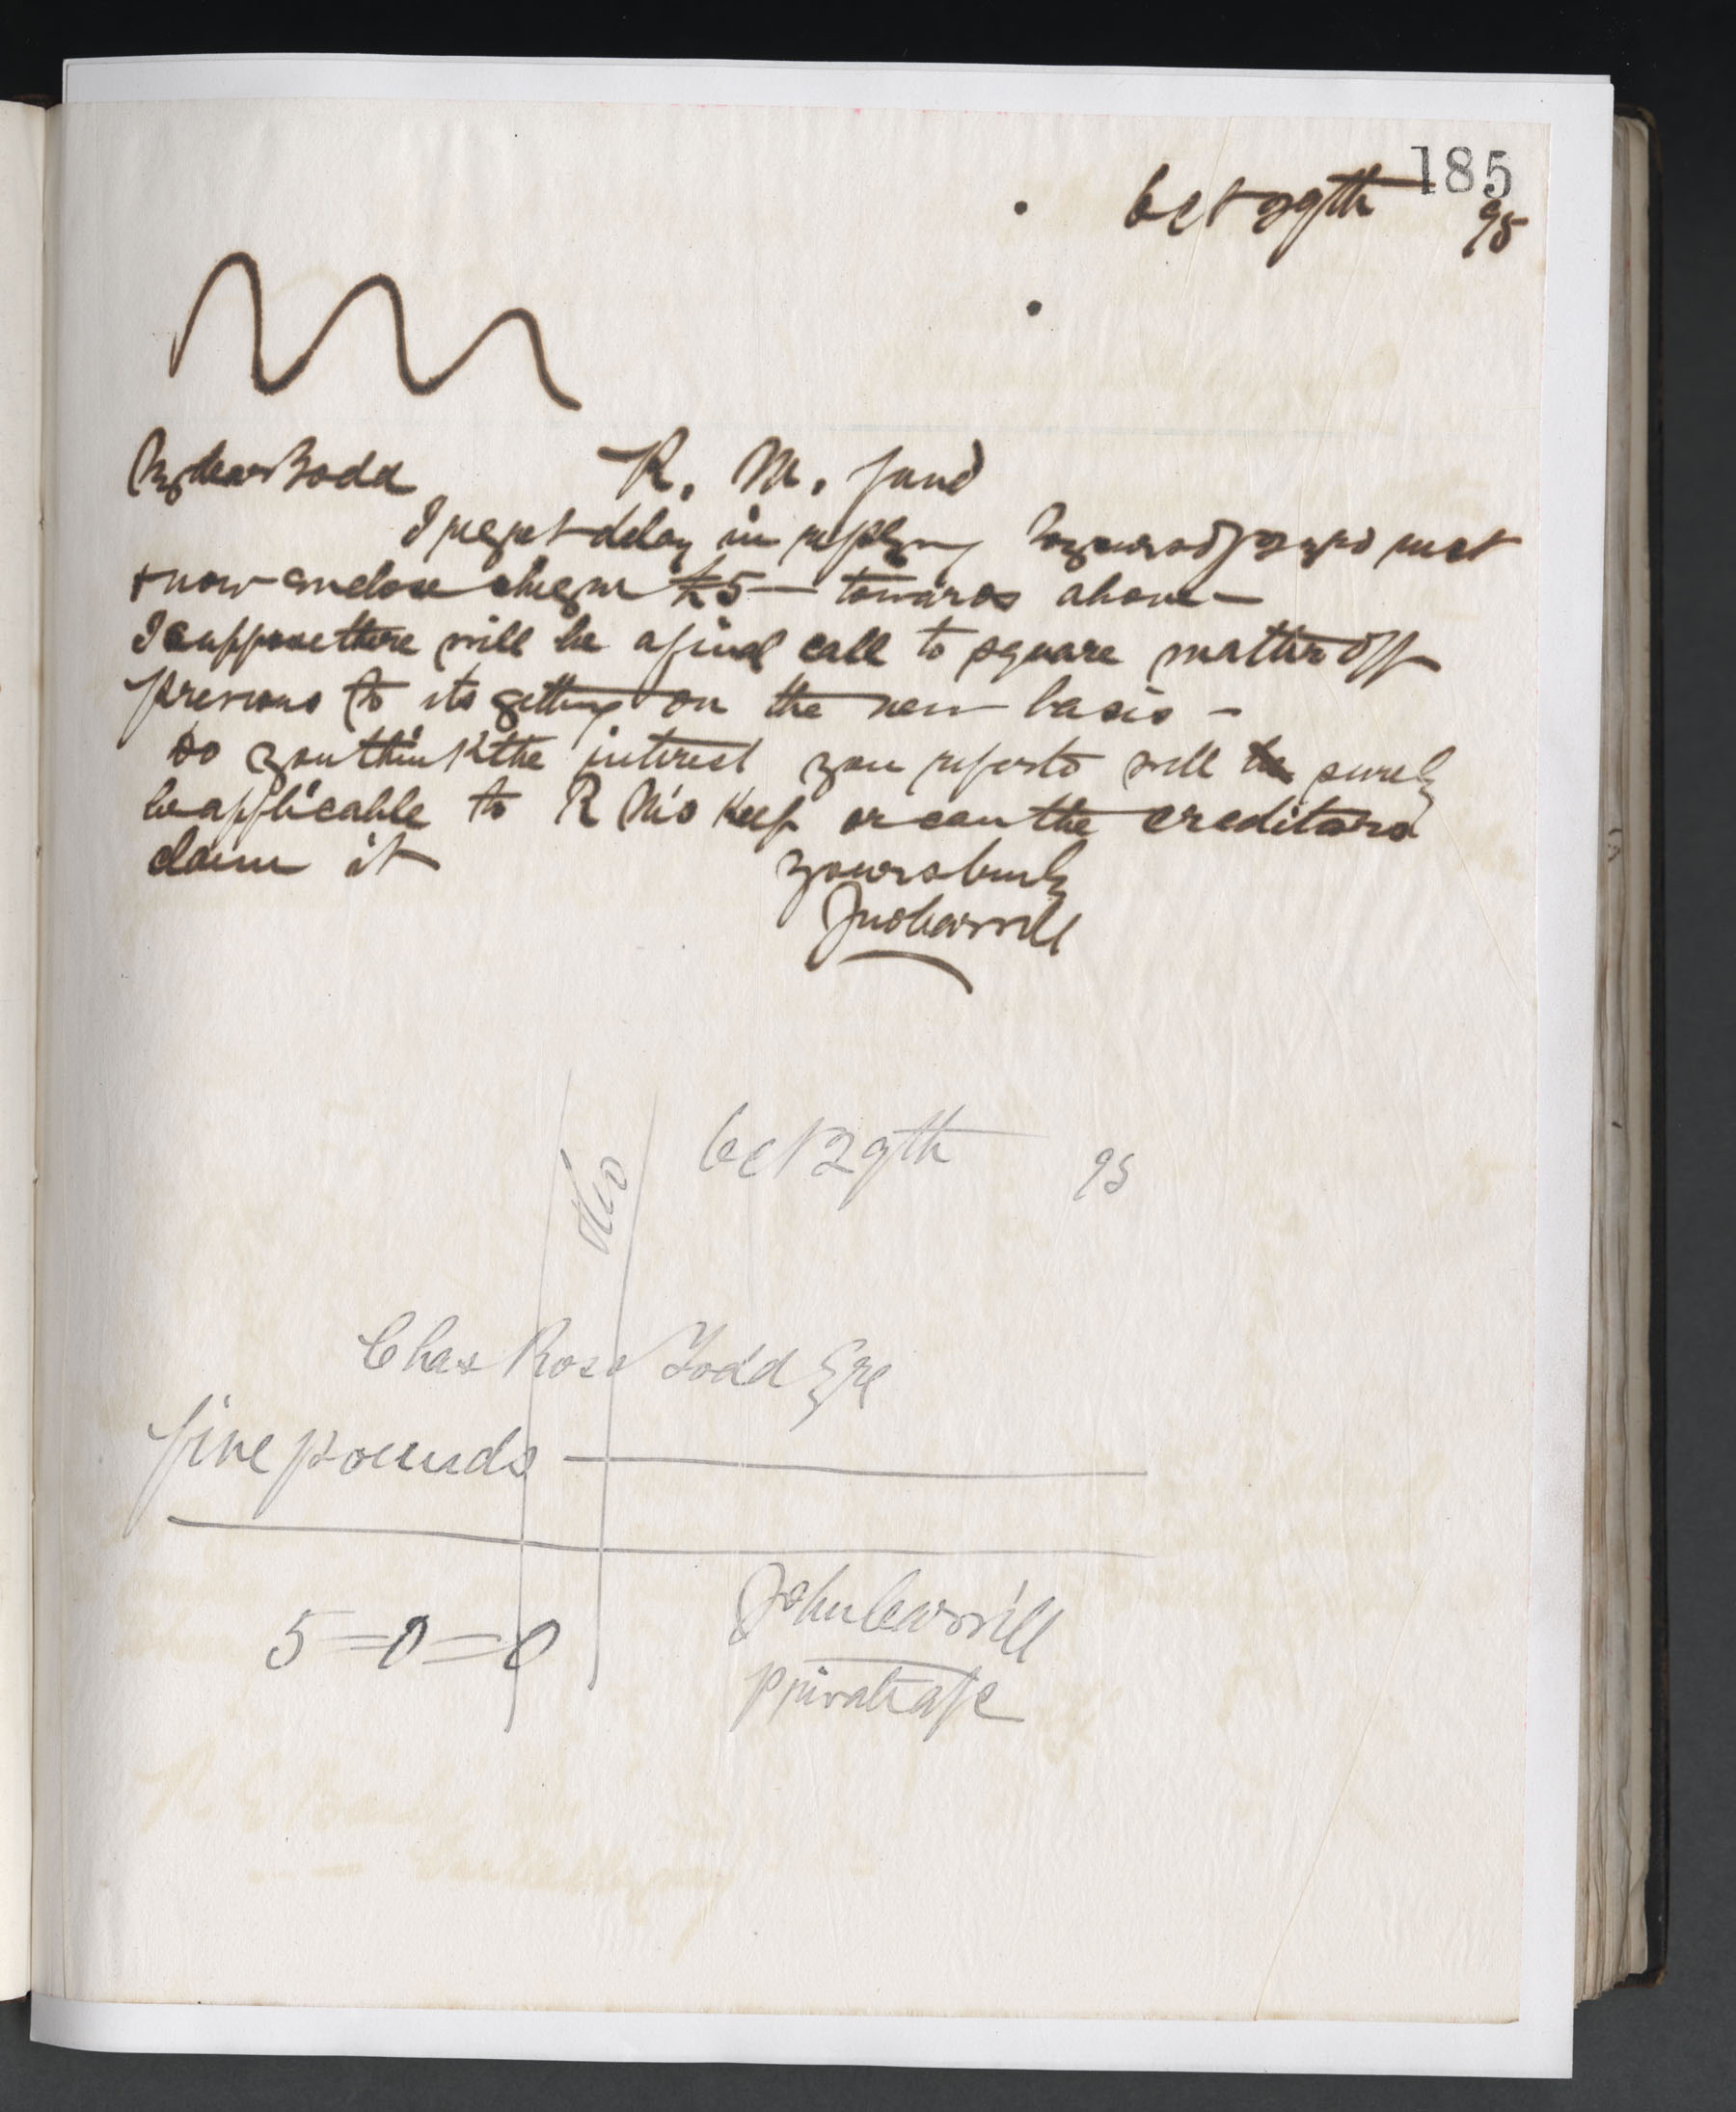 185
Oct 29th 95
My dear Todd
R. M. fund
I regret delay in replying to yours of
& now enclose cheque £5 — towards above —
I suppose there will be a final call to square matter off
previous to its getting on the new basis —
Do you think the interest you refer to will be surely
be applicable to R M's keep or can the creditors
claim it
Yours truly
Jno Carvill
Oct 29th 95
Chas Ross Todd Esq
five pounds
5=0=0
John Carvill
Private a/c